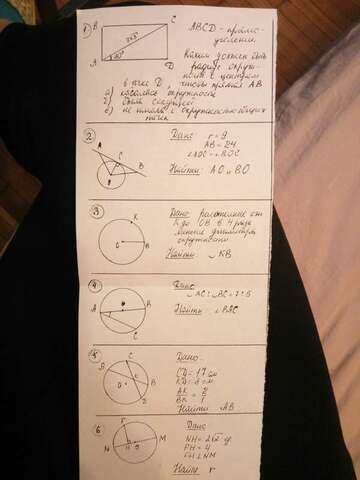 1
B
C
A
D
30°
ABCD - прямо-
угольник.
Каким должен быть
радиус окруж-
ности с центром
в точке D, чтобы прямая AB
а) касалась окружности
б) была секущей
в) не имела с окружностью общих
точек
2
A
C
B
O
Дано r = 9
AB = 24
∠AOC = ∠BOC
Найти: AO и BO
3
K
O
B
Дано расстояние от
K до OB в 4 раза
меньше диаметра
окружности
Найти ◡KB
4
A
B
C
Дано
◡AC : ◡BC = 7 : 5
Найти ∠BAC
5
C
A
B
O
Дано
CD = 17 см
KD = 8 см
AK/BK = 2/1
Найти AB
6
F
M
N
H
Дано
FH = 4
FH ⊥ NM
Найти r